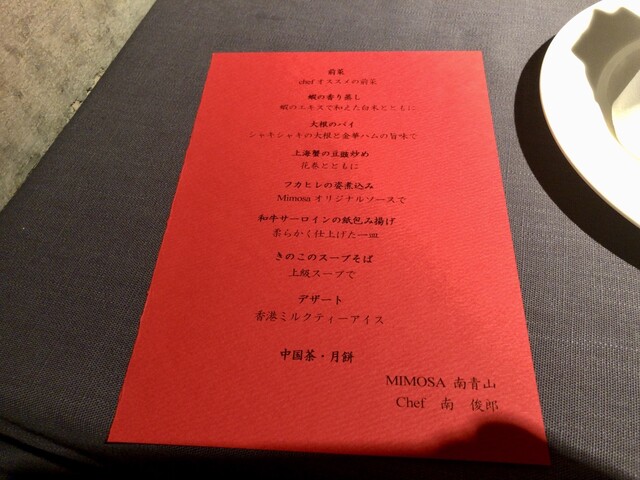 前菜
chef オススメの前菜
蝦の香り蒸し
蝦のエキスで和えた白米とともに
大根のパイ
シャキシャキの大根と金華ハムの旨味で
上海蟹の豆豉炒め
花巻とともに
フカヒレの姿煮込み
Mimosa オリジナルソースで
和牛サーロインの紙包み揚げ
柔らかく仕上げた一皿
きのこのスープそば
上級スープで
デザート
香港ミルクティーアイス
中国茶・月餅
MIMOSA 南青山
Chef 南 俊郎